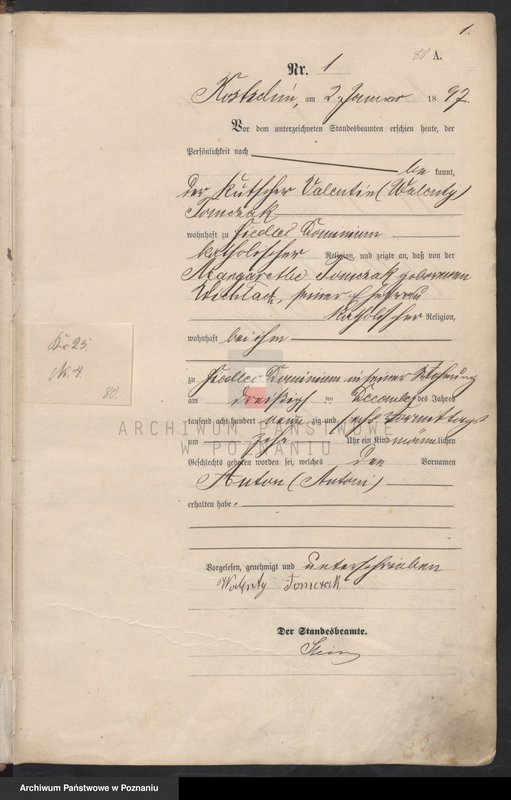 1.
80 A.
Nr. 1
am 2 Januar 1897.
Vor dem unterzeichneten Standesbeamten erschien heute, der
Persönlichkeit nach
be kannt,
der Kutscher Valentin (Walenty)
Tomczak
wohnhaft zu Siedlec Dominium
katholischer Religion, und zeigte an, daß von der
Margarethe Tomczak geborenen
seiner Ehefrau
katholischer Religion,
wohnhaft bei ihm
zu Siedlec Dominium in seiner Wohnung
am dreißigsten Dezember des Jahres
tausend acht hundert neun zig und sechs Vormittags
um zehn Uhr ein Kind männlichen
Geschlechts geboren worden sei, welches den Vornamen
Anton (Antoni)
erhalten habe.
Vorgelesen, genehmigt und unterschrieben
Walenty Tomczak
Der Standesbeamte.
Kr 25
Nr. 4.
80.
ARCHIWUM PAŃSTWOWE
W POZNANIU
Archiwum Państwowe w Poznaniu